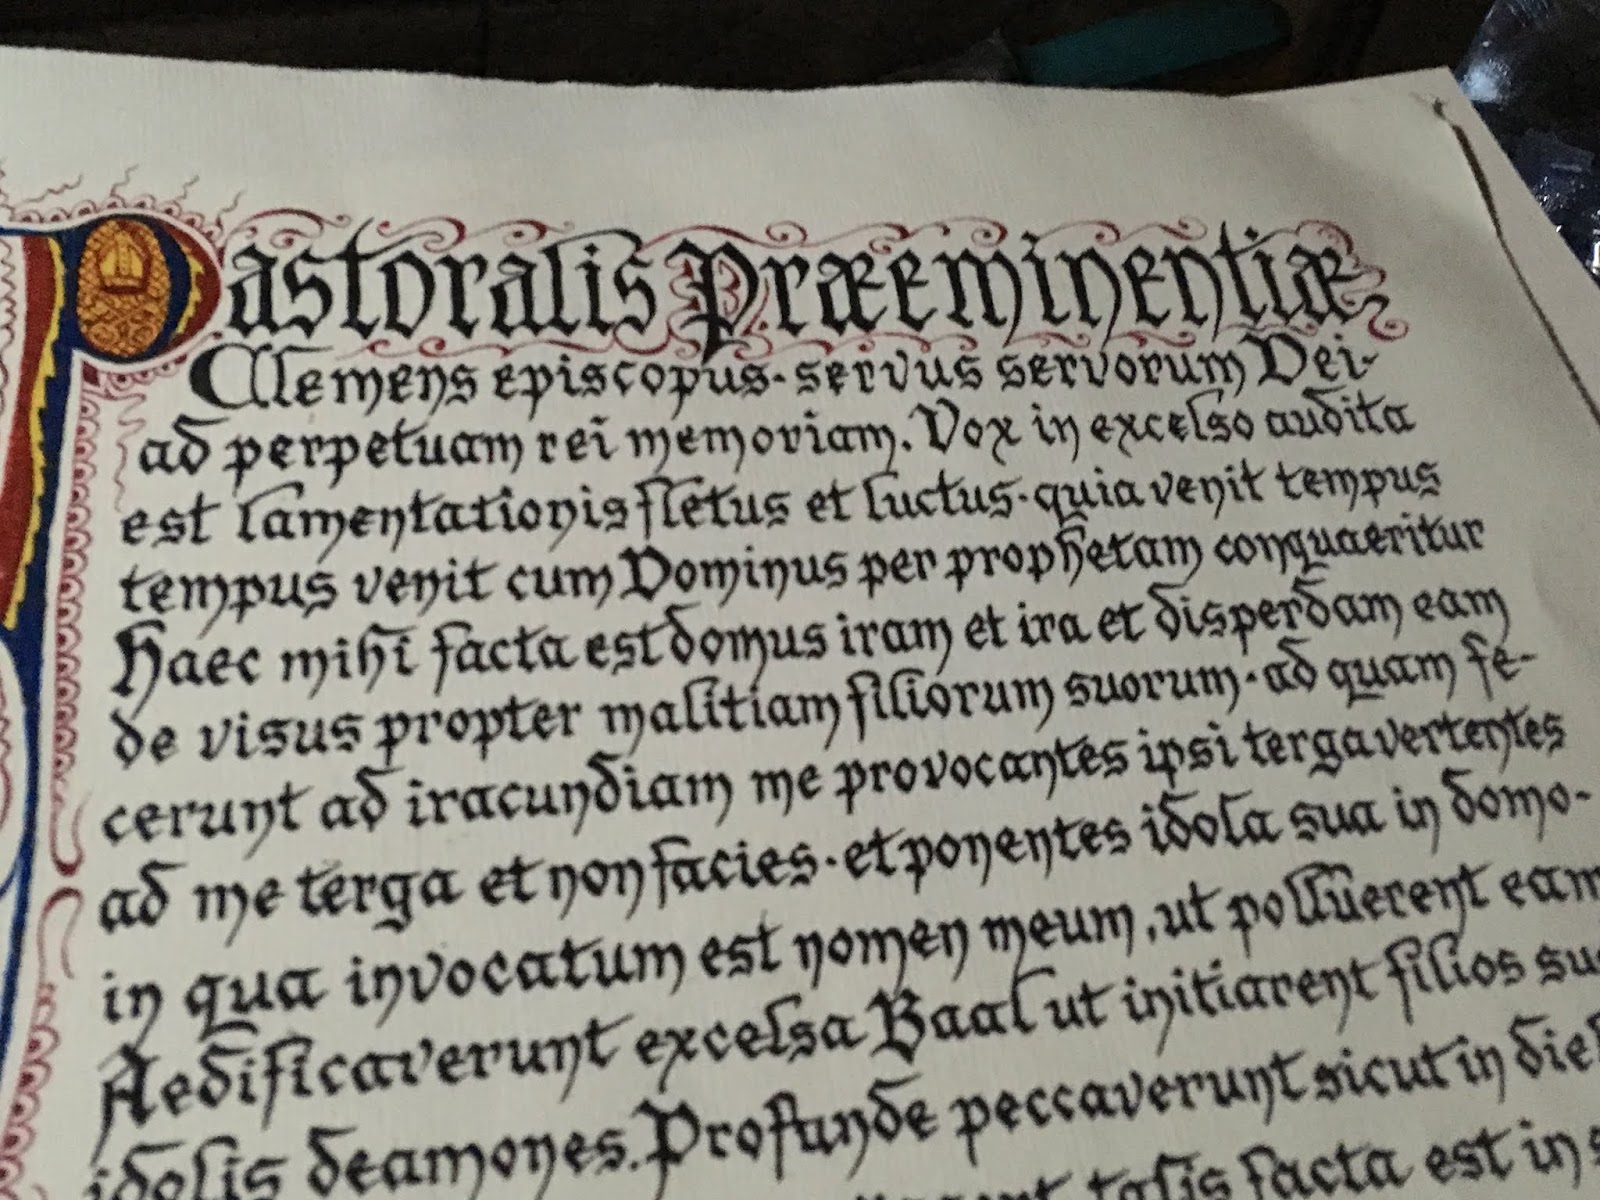 Pastoralis Præeminentiæ
Clemens episcopus·servus servorum Dei·
ad perpetuam rei memoriam. Vox in excelso audita
est lamentationis fletus et luctus·quia venit tempus
tempus venit cum Dominus per prophetam conquaeritur
Haec mihi facta est domus iram et ira et disperdam eam
de visus propter malitiam filiorum suorum·ad quam fe-
cerunt ad iracundiam me provocantes ipsi terga vertentes
ad me terga et non facies·et ponentes idola sua in domo·
in qua invocatum est nomen meum, ut polluerent eam
Aedificaverunt excelsa Baal ut initiarent filios
idolis deamones. Profunde peccaverunt sicut in
talis facta est in